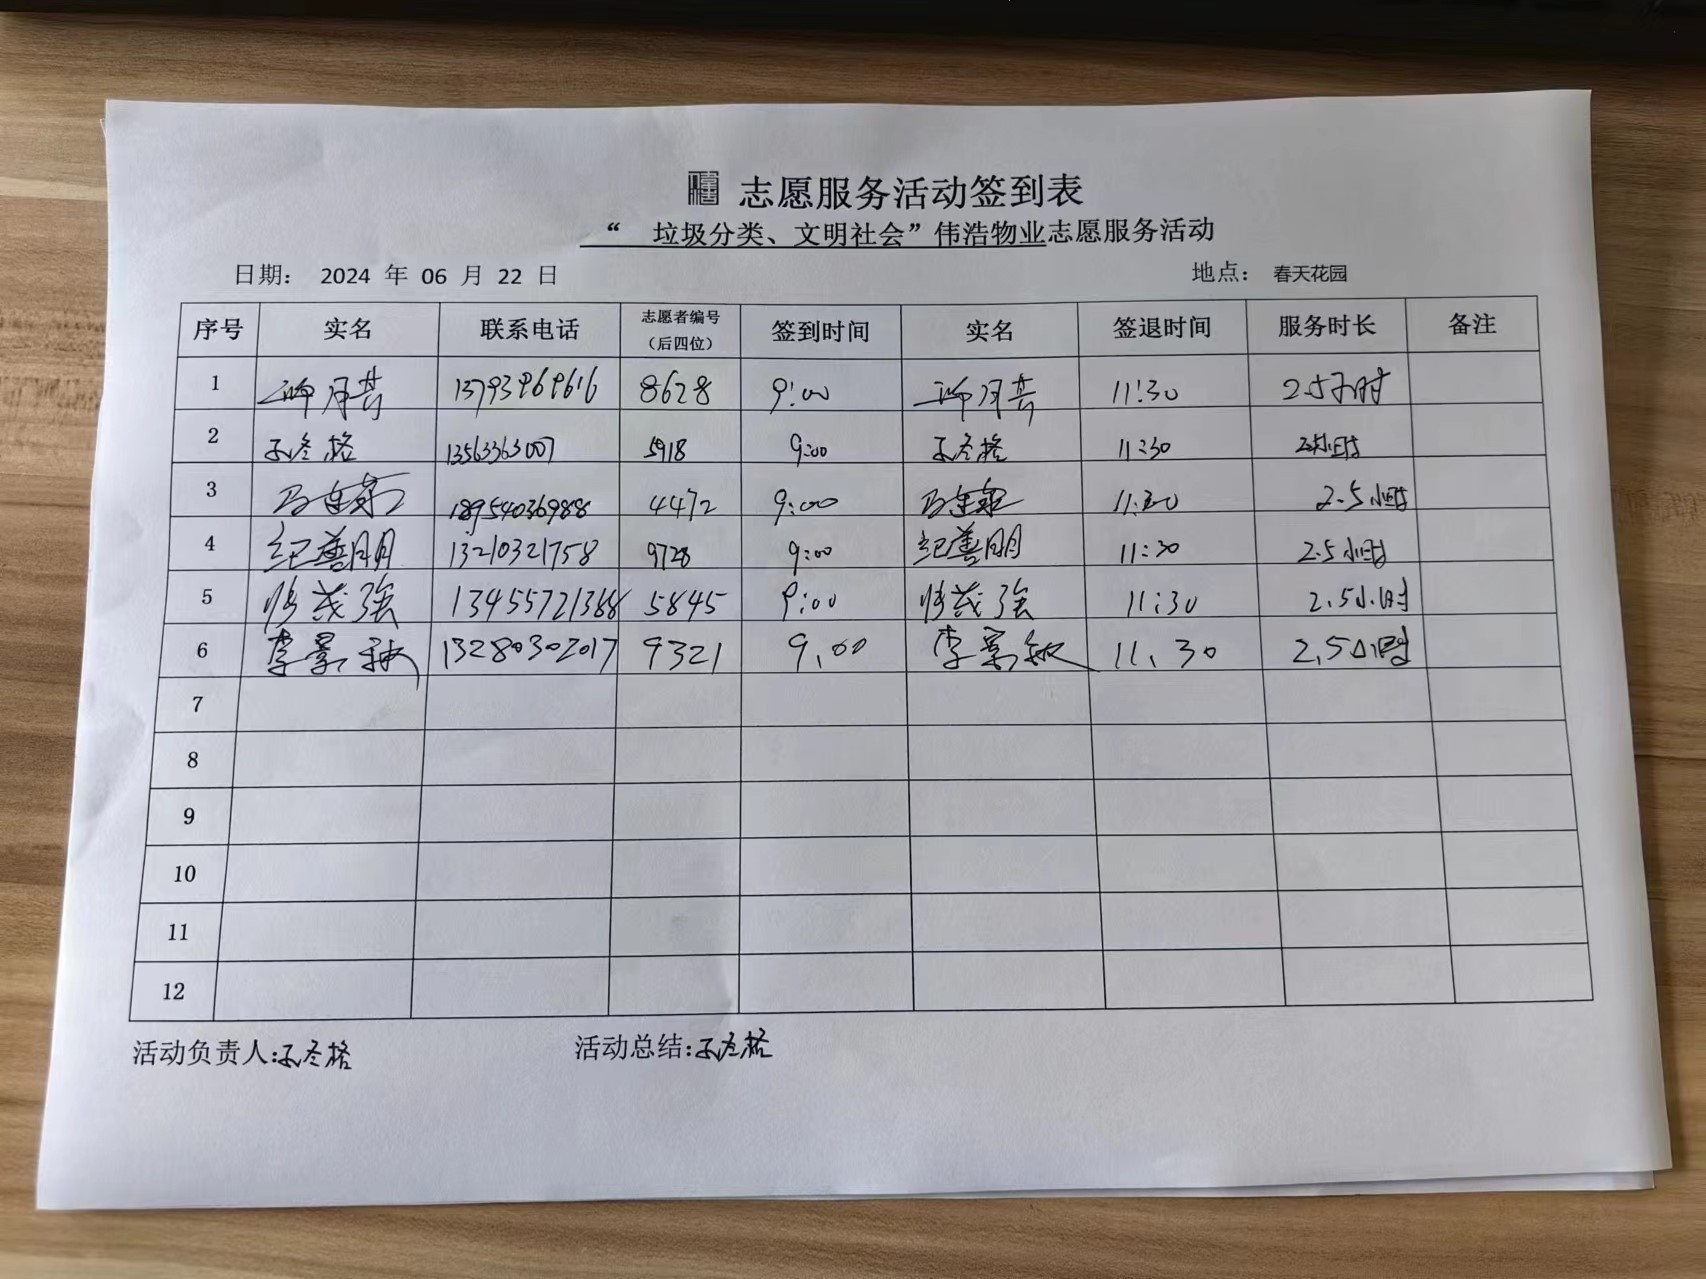 志愿服务活动签到表
“ 垃圾分类、文明社会”伟浩物业志愿服务活动
日期： 2024 年 06 月 22 日 地点： 春天花园
序号 实名 联系电话 志愿者编号（后四位） 签到时间 实名 签退时间 服务时长 备注
1 8628 9:00 11:30 2.5小时
2 孙冬格 13563363007 5918 9:00 孙冬格 11:30
3 18954036988 4472 9:00 11:30 2.5小时
4 纪善朋 13210321758 9728 9:00 纪善朋 11:30 2.5小时
5 13455721368 5845 9:00 11:30 2.5小时
6 李景敏 13280302017 9321 9.00 李景敏 11.30 2.5小时
7
8
9
10
11
12
活动负责人:孙冬格 活动总结:孙冬格